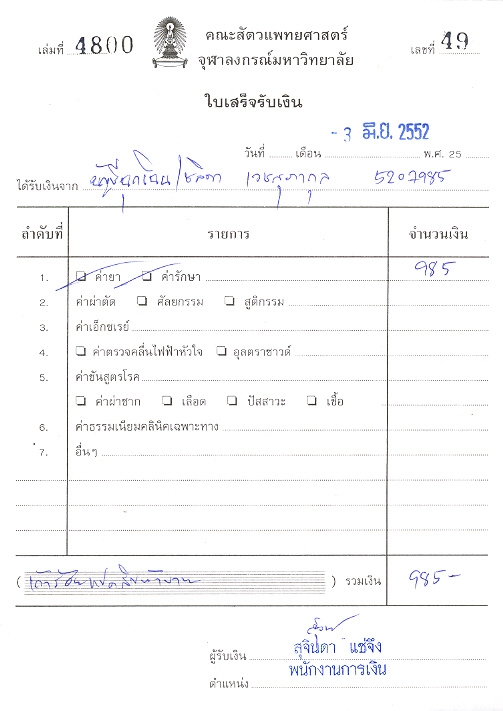 เล่มที่ 4800
คณะสัตวแพทยศาสตร์
จุฬาลงกรณ์มหาวิทยาลัย
เลขที่ 49
ใบเสร็จรับเงิน
- 3 มิ.ย. 2552
วันที่ เดือน พ.ศ. 25
ได้รับเงินจาก 5207985
ลำดับที่ รายการ จำนวนเงิน
1. ค่ายา ค่ารักษา 985
2. ค่าผ่าตัด ศัลยกรรม สูติกรรม
3. ค่าเอ็กซเรย์
4. ค่าตรวจคลื่นไฟฟ้าหัวใจ อุลตราซาวด์
5. ค่าชันสูตรโรค
ค่าผ่าซาก เลือด ปัสสาวะ เชื้อ
6. ค่าธรรมเนียมคลินิคเฉพาะทาง
7. อื่นๆ
(เก้าร้อยแปดสิบห้าบาท) รวมเงิน 985-
ผู้รับเงิน สุจินดา แซ่จึง
ตำแหน่ง พนักงานการเงิน